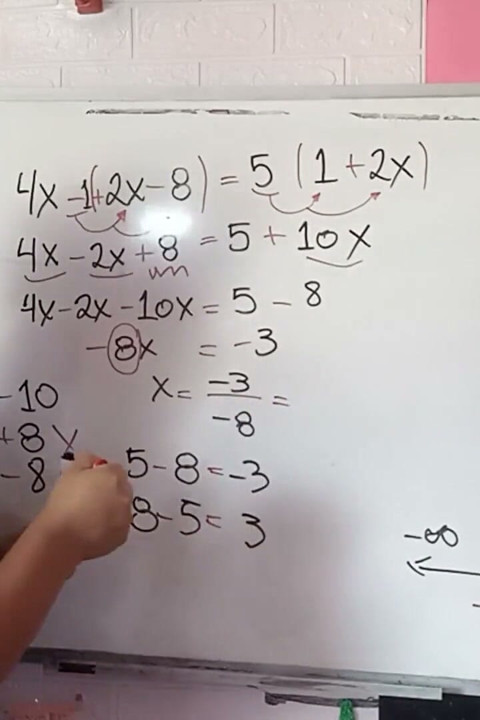 4x -1(+2x-8) = 5 (1+2x)
4x - 2x + 8 = 5 + 10x
4x-2x-10x = 5 - 8
-8x = -3
x = -3/-8 =
-10
+8
-8
5-8=-3
8-5= 3
-∞